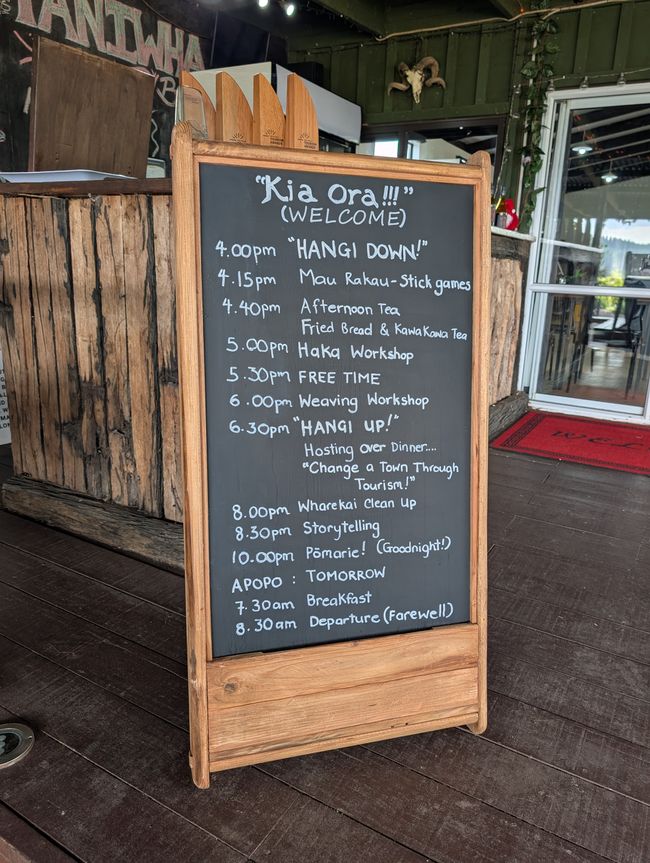 TANIWHA
"Kia Ora!!!"
(WELCOME)
4.00pm "HANGI DOWN!"
4.15pm Mau Rakau - Stick games
4.40pm Afternoon Tea
Fried Bread & KawaKawa Tea
5.00pm Haka Workshop
5.30pm FREE TIME
6.00pm Weaving Workshop
6.30pm "HANGI UP!"
Hosting over Dinner....
"Change a Town Through
Tourism!"
8.00pm Wharekai Clean Up
8.30pm Storytelling
10.00pm Pōmarie! (Goodnight!)
APOPO : TOMORROW
7.30am Breakfast
8.30am Departure (Farewell)